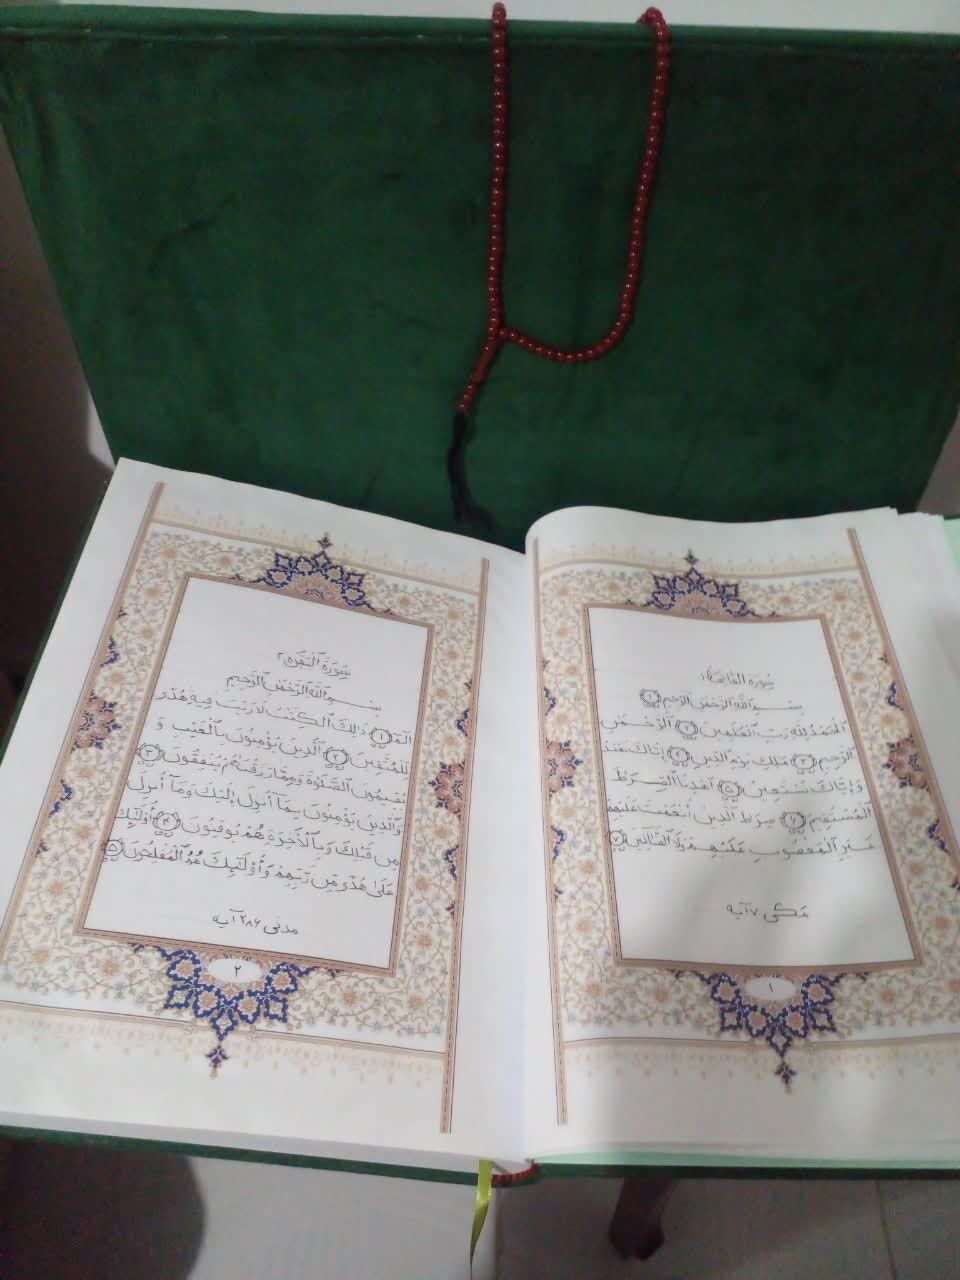 سُورَة الفَاتِحَة ۱
بِسْمِ اللَّهِ الرَّحْمَٰنِ الرَّحِيمِ ﴿۱﴾
اَلْحَمْدُ لِلَّهِ رَبِّ الْعَٰلَمِينَ ﴿۲﴾ اَلرَّحْمَٰنِ
الرَّحِيمِ ﴿۳﴾ مَٰلِكِ يَوْمِ الدِّينِ ﴿۴﴾ إِيَّاكَ نَعْبُدُ
وَإِيَّاكَ نَسْتَعِينُ ﴿۵﴾ اَهْدِنَا الصِّرَٰطَ
الْمُسْتَقِيمَ ﴿۶﴾ صِرَٰطَ الَّذِينَ أَنْعَمْتَ عَلَيْهِمْ
غَيْرِ الْمَغْضُوبِ عَلَيْهِمْ وَلَا الضَّالِّينَ ﴿۷﴾
مَكّي ۷ آيه
۱
سُورَةُ الْبَقَرَة ۲
بِسْمِ اللَّهِ الرَّحْمَٰنِ الرَّحِيمِ
الٓمٓ ﴿۱﴾ ذَٰلِكَ الْكِتَٰبُ لَا رَيْبَ فِيهِ هُدًى
لِلْمُتَّقِينَ ﴿۲﴾ اَلَّذِينَ يُؤْمِنُونَ بِالْغَيْبِ وَ
يُقِيمُونَ الصَّلَوٰةَ وَمِمَّا رَزَقْنَٰهُمْ يُنْفِقُونَ ﴿۳﴾
وَالَّذِينَ يُؤْمِنُونَ بِمَآ أُنْزِلَ إِلَيْكَ وَمَآ أُنْزِلَ
مِن قَبْلِكَ وَبِالْأَخِرَةِ هُمْ يُوقِنُونَ ﴿۴﴾ أُوْلَٰئِكَ
عَلَىٰ هُدًى مِّن رَّبِّهِمْ وَأُوْلَٰئِكَ هُمُ الْمُفْلِحُونَ ﴿۵﴾
مدنی ۲۸۶ آیه
۲